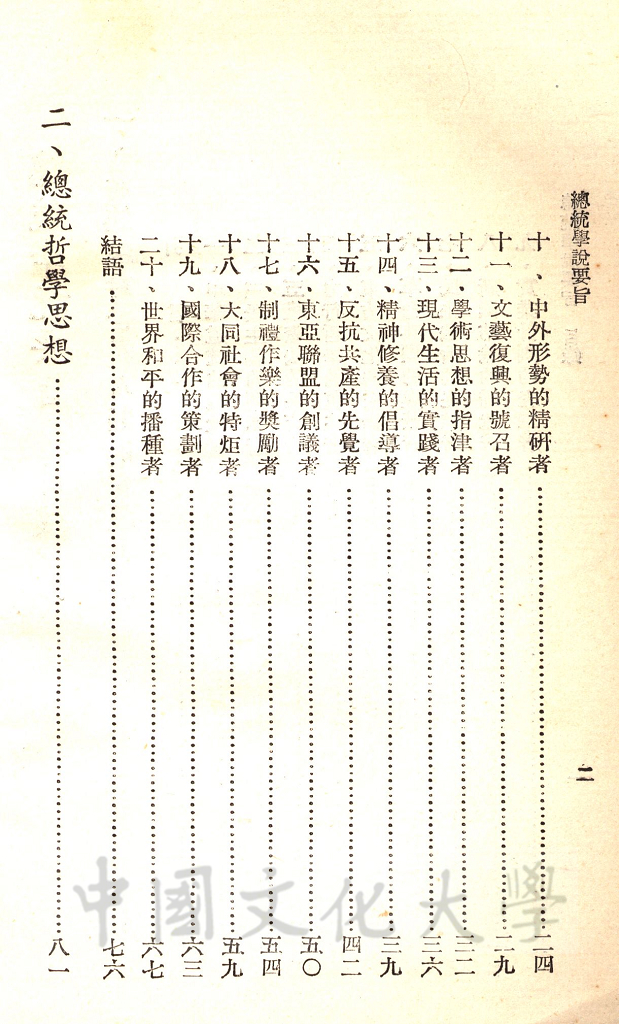 總統學說要旨
二
十、中外形勢的精研者……二四
十一、文藝復興的號召者……二九
十二、學術思想的指津者……三二
十三、現代生活的實踐者……三六
十四、精神修養的倡導者……三九
十五、反抗共產的先覺者……四二
十六、東亞聯盟的創議者……五〇
十七、制禮作樂的獎勵者……五四
十八、大同社會的特炬者……五九
十九、國際合作的策劃者……六三
二十、世界和平的播種者……六七
結語……七六
二、總統哲學思想……八一
中國文化大學